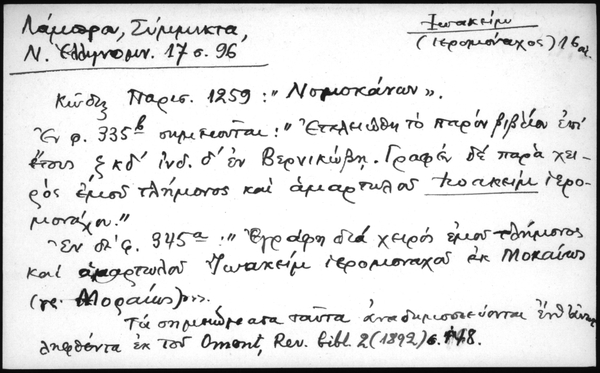 Λάμπρου, Σύμμικτα,
Ν. Ἑλληνομν. 17 σ. 96
Ἰωακείμ
(ἱερομόναχος) 16 αἰ.
Κώδιξ Παρισ. 1259 : "Νομοκάνων".
Ἐν φ. 335b σημειοῦται : "Ἐτελειώθη τὸ παρὸν βιβλίον ἐπὶ
ἔτους ζκδ' ἰνδ. δ' ἐν Βερνικώβῃ. Γραφὲν δὲ παρὰ χει-
ρὸς ἐμοῦ τλήμονος καὶ ἁμαρτωλοῦ Ἰωακεὶμ ἱερο-
μονάχου."
Ἐν δὲ φ. 345a : "Ἐγράφη διὰ χειρὸς ἐμοῦ τλήμονος
καὶ ἁμαρτωλοῦ Ἰωακεὶμ ἱερομονάχου ἐκ Μοκαίως
(γρ. Μοραίως)".
Τὰ σημειώματα ταῦτα ἀναδημοσιεύονται
ληφθέντα ἐκ τοῦ Omont, Rev. bibl. 2 (1892) σ.